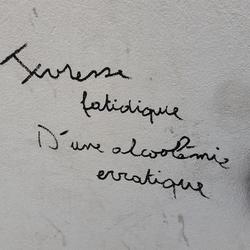 Ivresse
fatidique
D'une alcoolémie
erratique